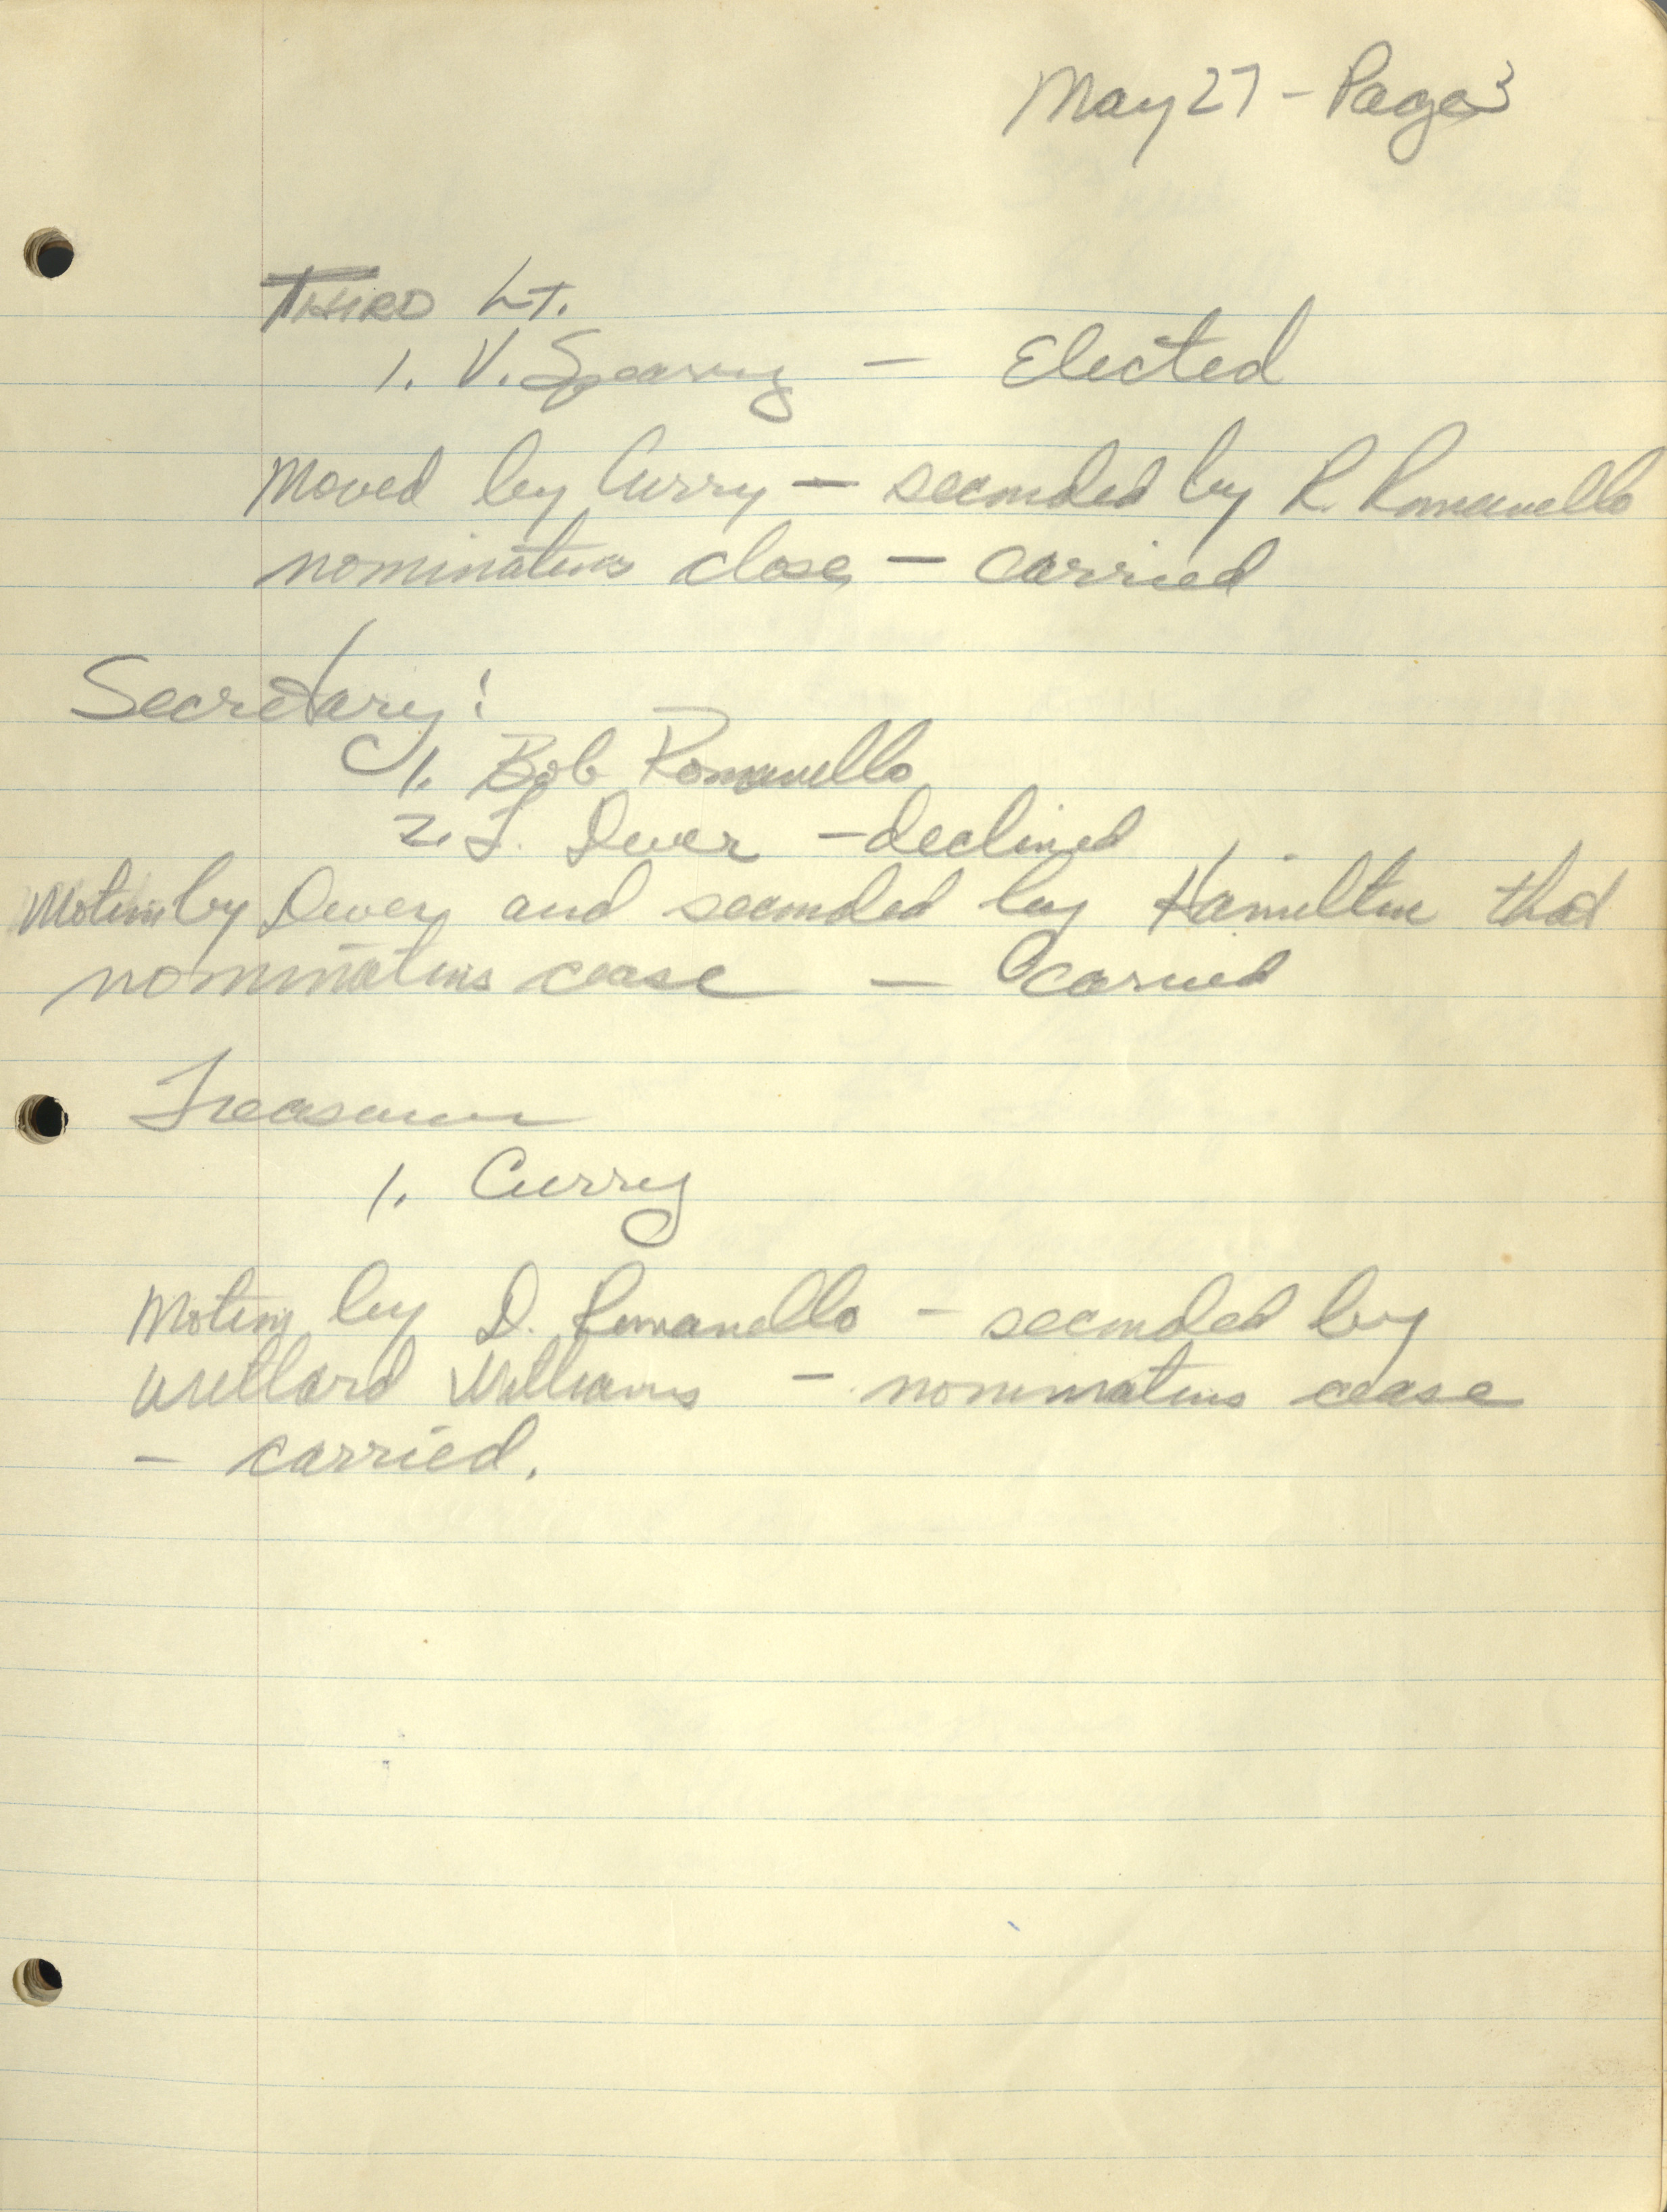 May 27 - Page 3
THIRD LT.
1. V. Spearing - Elected
Moved by Curry - seconded by R. Romanello
nominations close - carried
Secretary:
1. Bob Romanello
2. - declined
Motion by and seconded by Hamilton that
nominations cease - carried
Treasurer
1. Curry
Motion by D. Romanello - seconded by
Willard Williams - nominations cease
- carried.